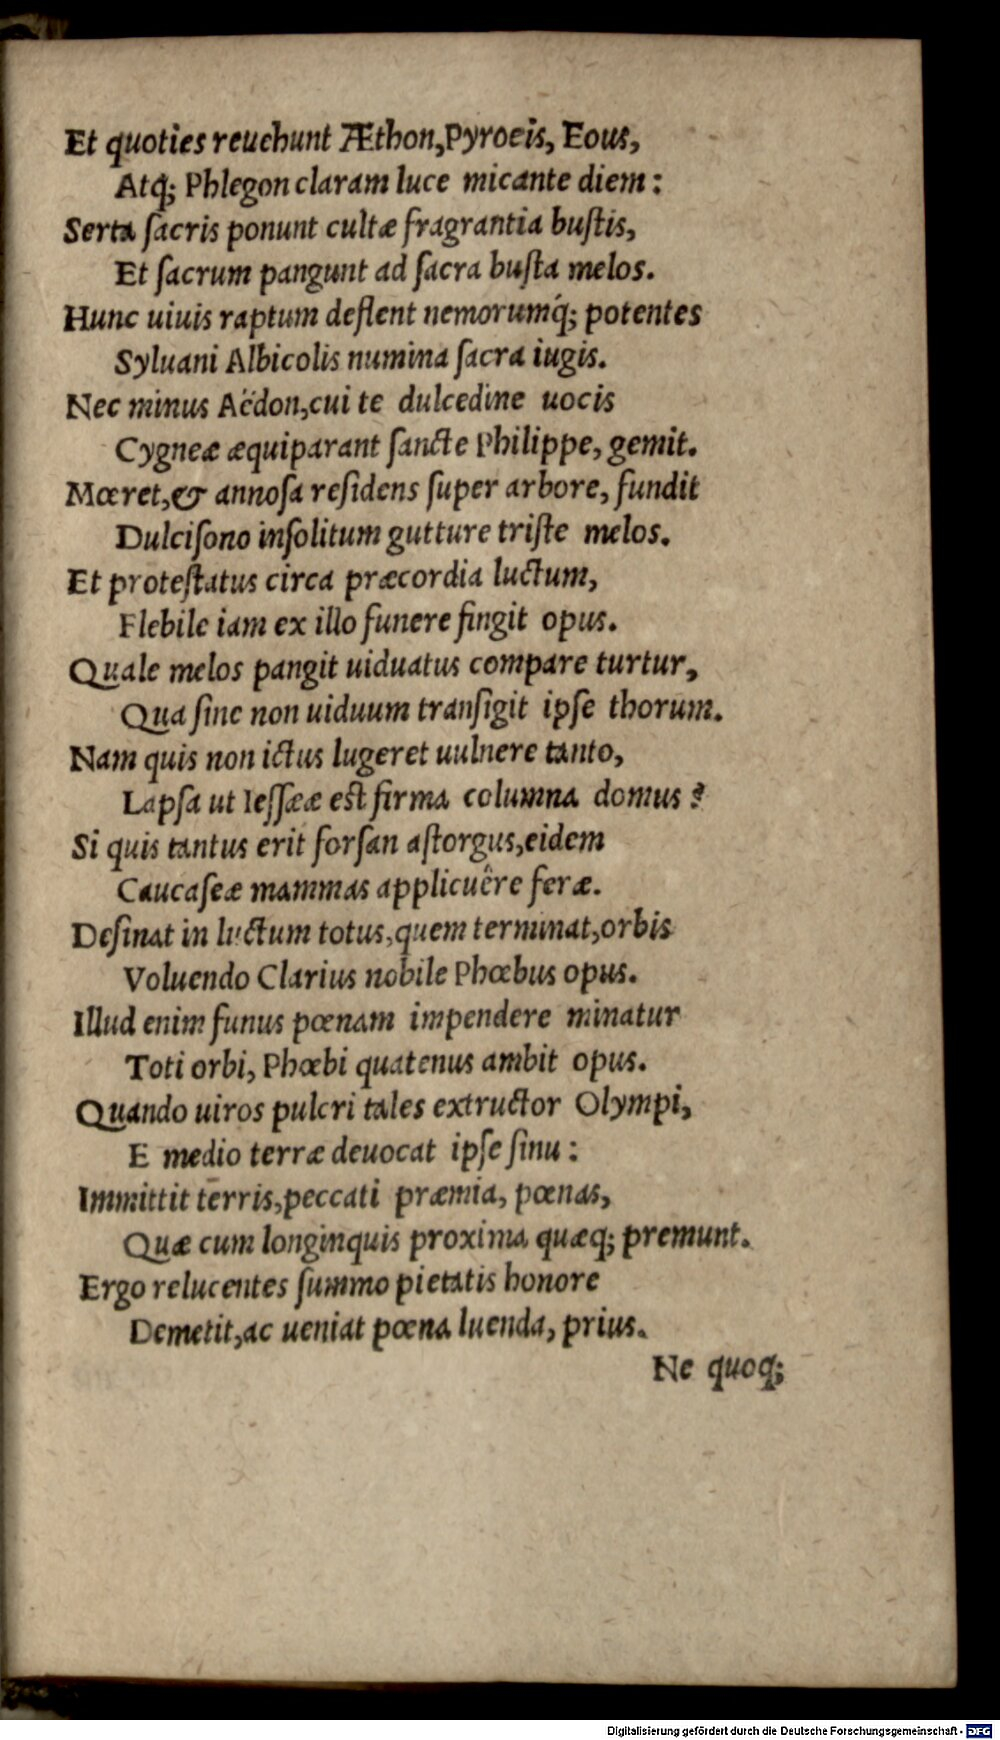 Et quoties reuehunt Æthon,Pyroeis, Eous,
Atq́; Phlegon claram luce micante diem:
Serta ſacris ponunt cultæ fragrantia buſtis,
Et ſacrum pangunt ad ſacra buſta melos.
Hunc uiuis raptum deflent nemorumq́; potentes
Syluani Albicolis numina ſacra iugis.
Nec minus Aëdon,cui te dulcedine uocis
Cygneæ æquiparant ſancte Philippe, gemit.
Mœret,& annoſa reſidens ſuper arbore, fundit
Dulciſono inſolitum gutture triſte melos.
Et proteſtatus circa præcordia luctum,
Flebile iam ex illo funere fingit opus.
Quale melos pangit uiduatus compare turtur,
Qua ſine non uiduum tranſigit ipſe thorum.
Nam quis non ictus lugeret uulnere tanto,
Lapſa ut Ieſſææ est firma columna domus?
Si quis tantus erit forſan aſtorgus,eidem
Caucaſeæ mammas applicuêre feræ.
Deſinat in luctum totus,quem terminat,orbis
Voluendo Clarius nobile Phœbus opus.
Illud enim funus pœnam impendere minatur
Toti orbi, Phœbi quatenus ambit opus.
Quando uiros pulcri tales extructor Olympi,
E medio terræ deuocat ipſe ſinu:
Immittit terris,peccati præmia, pœnas,
Quæ cum longinquis proxima quæq; premunt.
Ergo relucentes ſummo pietatis honore
Demetit,ac ueniat pœna luenda, prius.
Ne quoq;
Digitalisierung gefördert durch die Deutsche Forschungsgemeinschaft - DFG